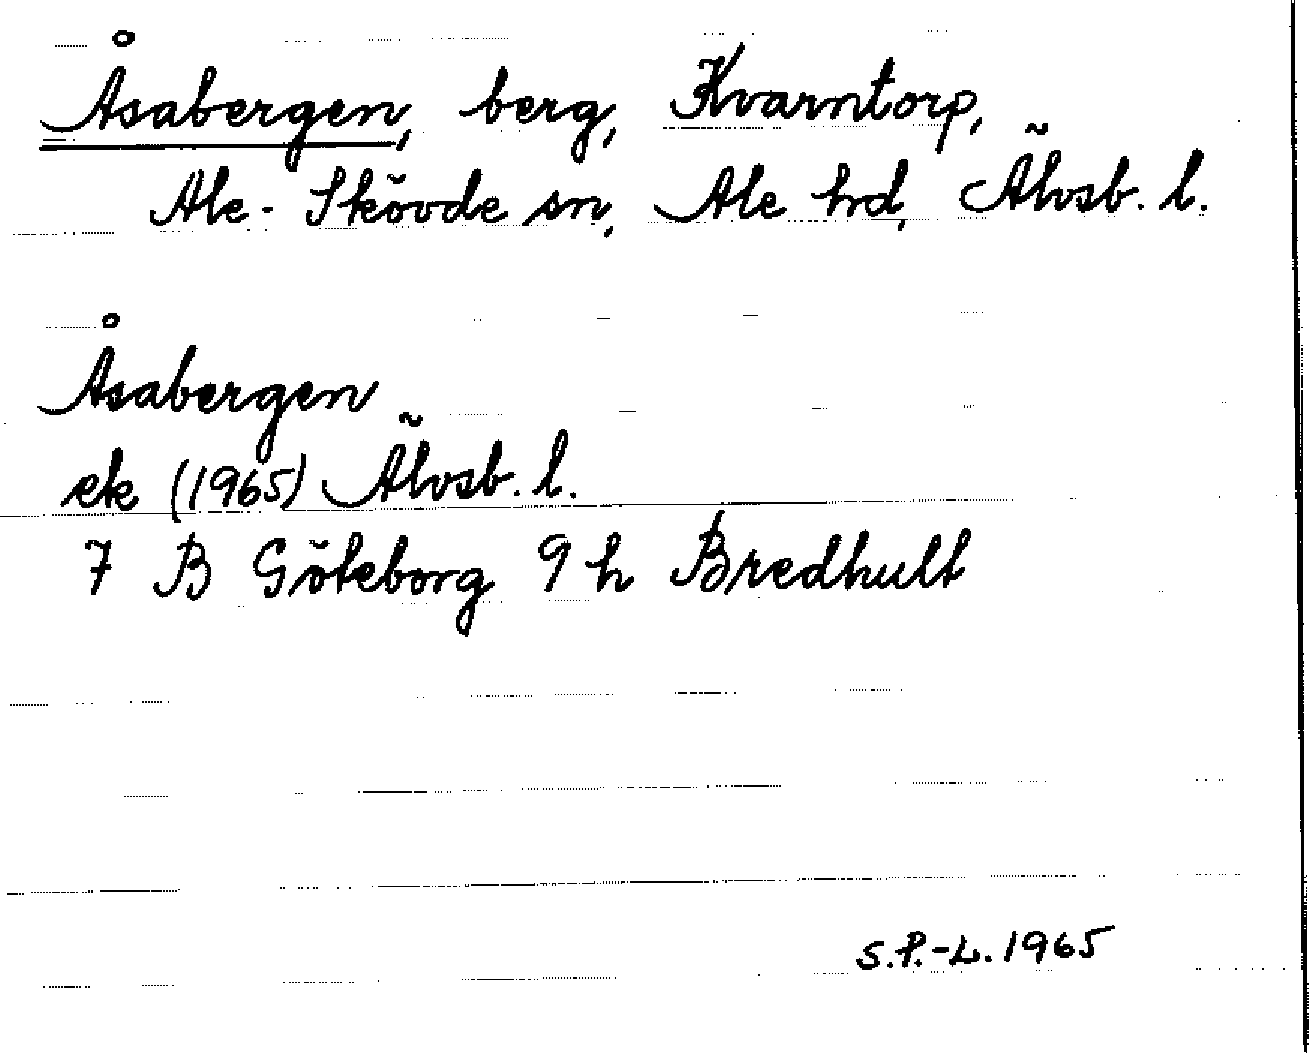 Åsabergen, berg, Kvarntorp,
Ale-Skövde sn, Ale hrd, Älvsb. l.
Åsabergen
ek (1965) Älvsb. l.
7 B Göteborg 9 h Bredhult
S.P.-L. 1965